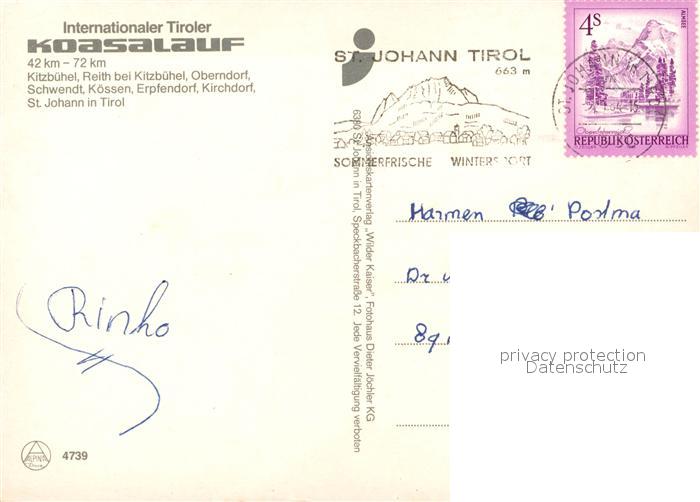 Internationaler Tiroler
KOASALAUF
42 km – 72 km
Kitzbühel, Reith bei Kitzbühel, Oberndorf,
Schwendt, Kössen, Erpfendorf, Kirchdorf,
St. Johann in Tirol
ST. JOHANN TIROL
663 m
SOMMERFRISCHE WINTERSPORT
4S
ALMSEE
REPUBLIK ÖSTERREICH
Ansichtskartenverlag „Wilder Kaiser", Fotohaus Dieter Jöchler KG
6380 St. Johann in Tirol, Speckbacherstraße 12. Jede Vervielfältigung verboten
Harmen Postma
Dr
privacy protection
Datenschutz
Rinko
ALPINA
4739